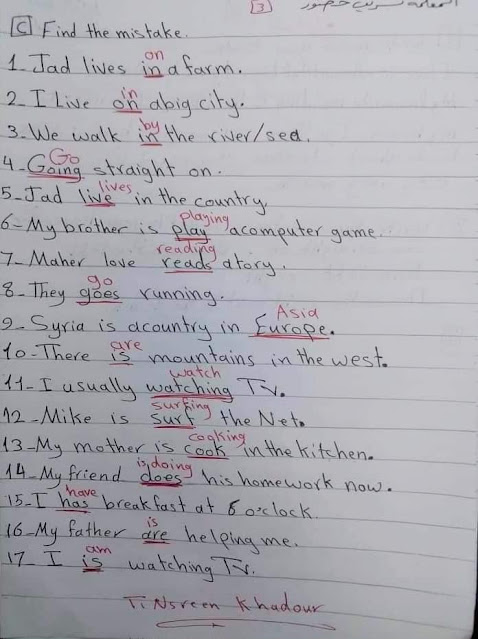 3
المعلمة نسرين خضور
C Find the mistake.
on
1- Jad lives in a farm.
in
2- I Live on abig city.
by
3- We walk in the river/sea.
Go
4- Going straight on.
lives
5- Jad live in the country,
playing
6- My brother is play acomputer game.
reading
7- Maher love reads atory.
go
8- They goes running.
Asia
9- Syria is acountry in Europe.
are
10- There is mountains in the west.
watch
11- I usually watching Tv.
surfing
12- Mike is surf the Net.
cooking
13- My mother is cook in the kitchen.
is doing
14- My friend does his homework now.
have
15- I has breakfast at o'clock
is
16- My father are helping me.
am
17- I is watching Tv.
T: Nsreen Khadour